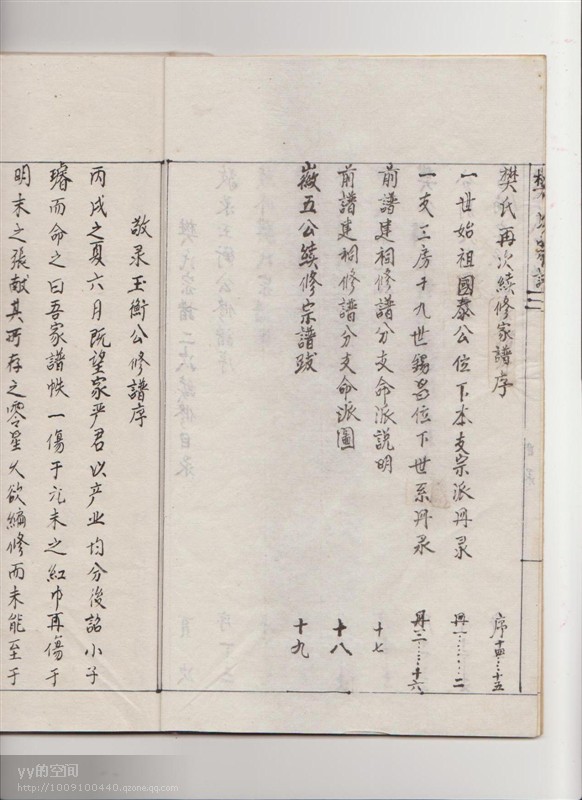 樊氏宗譜
樊氏再次续修家譜序 序十四……十五
一世始祖國泰公位下本支宗派丹录 丹一……二
一支三房十九世錫昌位下世系丹录 丹三……十六
前譜建祠修譜分支命派説明 十七
前譜建祠修譜分支命派圖 十八
徽五公续修宗譜跋 十九
敬录玉衡公修譜序
丙戌之夏六月既望家严君以产业均分後詔小子
璿而命之曰吾家譜帙一傷于元末之紅巾再傷于
明末之張献其所存之零星久欲编修而未能至于
yy的空间
http://1009100440.qzone.qq.com